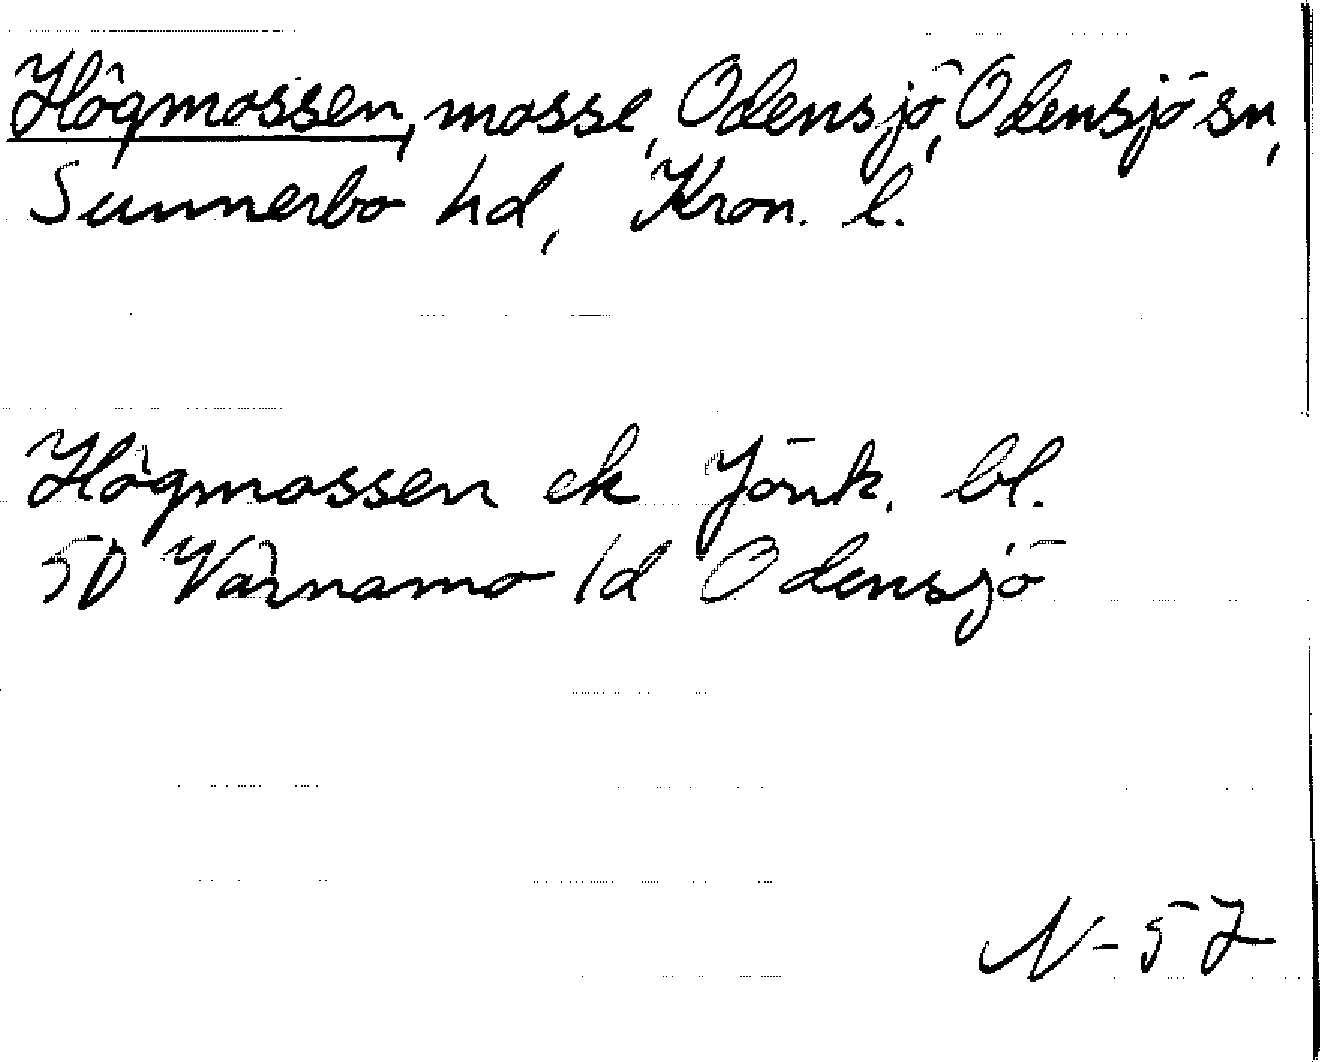 Högmossen, mosse, Odensjö, Odensjö sn,
Sunnerbo hd, Kron. l.
Högmossen ek Jönk. bl.
5D Värnamo 1d Odensjö
N-57